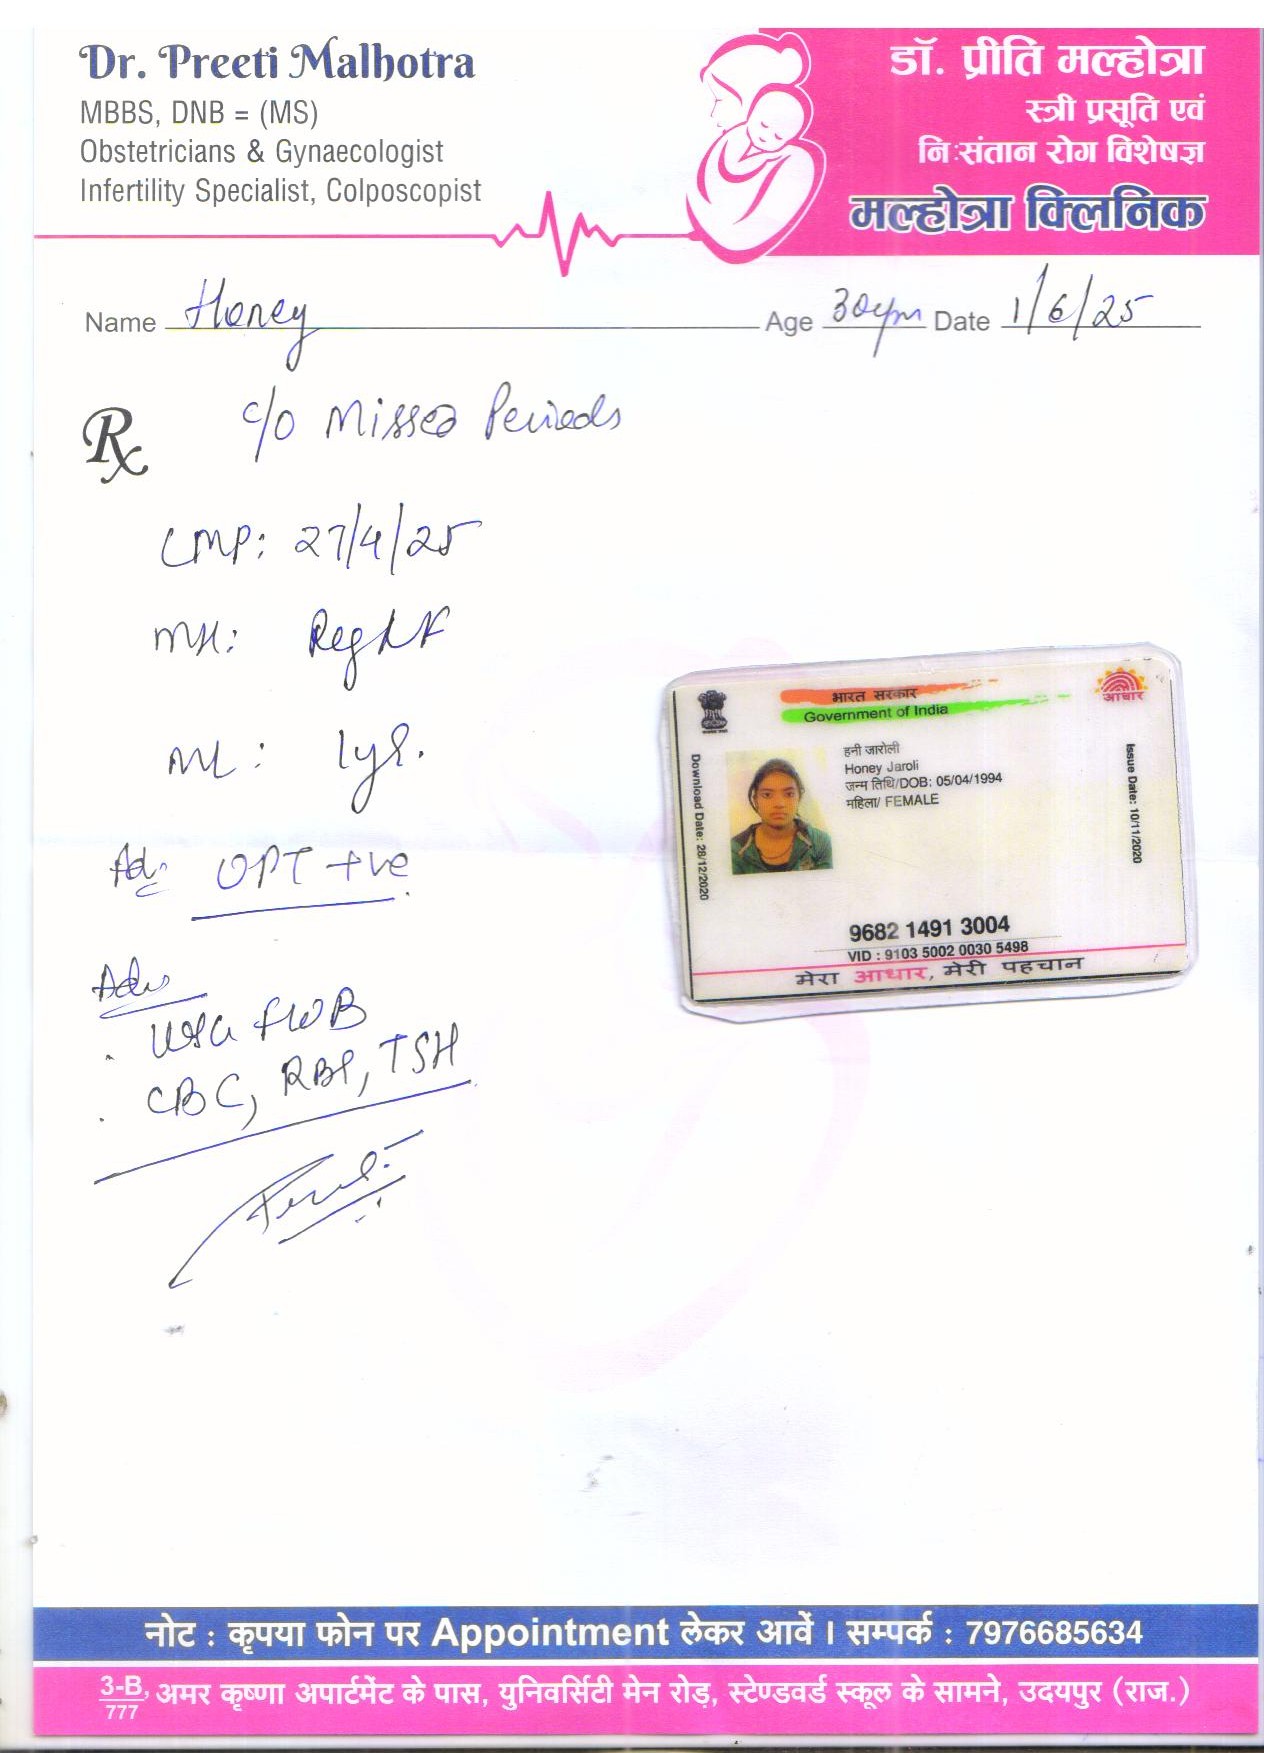 Dr. Preeti Malhotra
MBBS, DNB = (MS)
Obstetricians & Gynaecologist
Infertility Specialist, Colposcopist
डॉ. प्रीति मल्होत्रा
स्त्री प्रसूति एवं
नि:संतान रोग विशेषज्ञ
मल्होत्रा क्लिनिक
Name Honey Age 30 Date 1/6/25
Rx c/o Missed Periods
LMP: 27/4/25
MH:
ML: 1yr.
UPT +ve
Adv
USG FWB
CBC, RBS, TSH
भारत सरकार
Government of India
आधार
हनी जारोली
Honey Jaroli
जन्म तिथि/DOB: 05/04/1994
महिला/ FEMALE
Download Date: 28/12/2020
Issue Date: 10/11/2020
9682 1491 3004
VID : 9103 5002 0030 5498
मेरा आधार, मेरी पहचान
नोट : कृपया फोन पर Appointment लेकर आवें । सम्पर्क : 7976685634
3-B/777, अमर कृष्णा अपार्टमेंट के पास, युनिवर्सिटी मेन रोड़, स्टेण्डवर्ड स्कूल के सामने, उदयपुर (राज.)